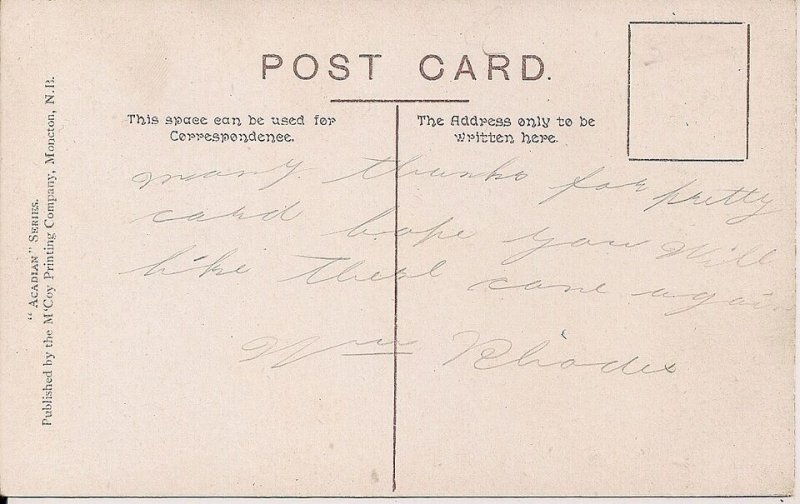 POST CARD.
This space can be used for
Correspondence.
The Address only to be
written here.
many thanks for pretty
card hope you will
like these come again
Wm Rhodes
"ACADIAN" SERIES.
Published by the McCoy Printing Company, Moncton, N.B.